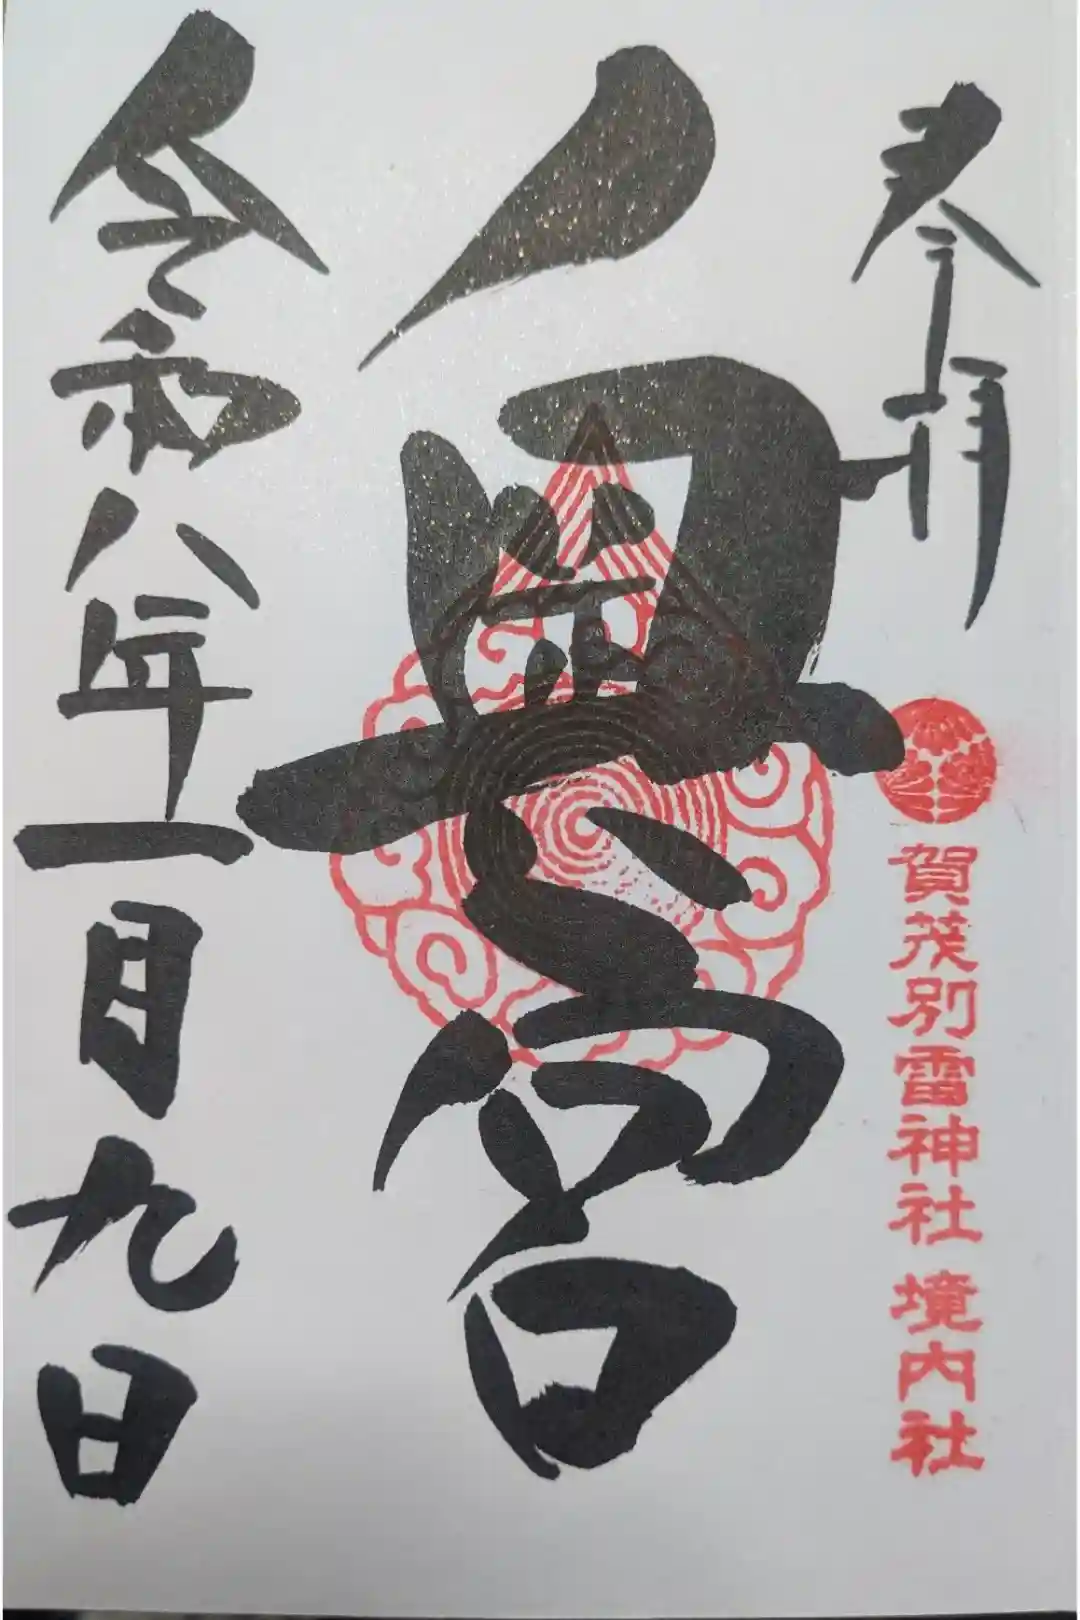 奉拝
賀茂別雷神社 境内社
奥宮
令和八年一月九日